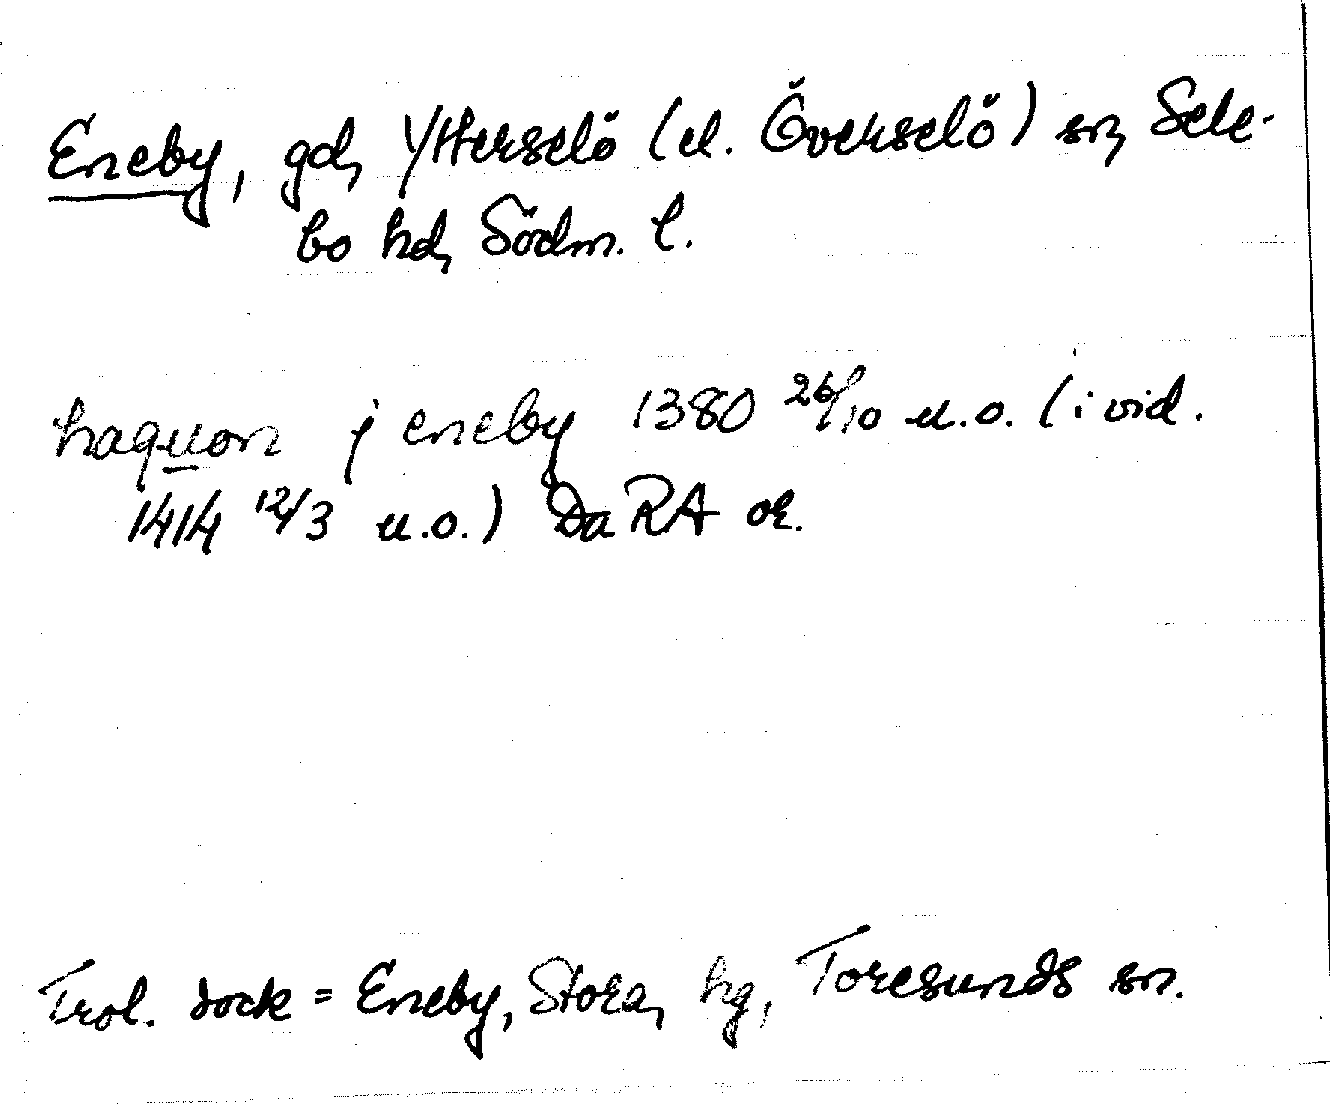 Eneby, gd, Ytterselö (el. Överselö) sn, Sele-
bo hd, Södm. l.
haquon j eneby 1380 26/10 u.o. (i vid.
1414 12/3 u.o.) Da RA or.
Trol. dock = Eneby, Stora, hg, Toresunds sn.